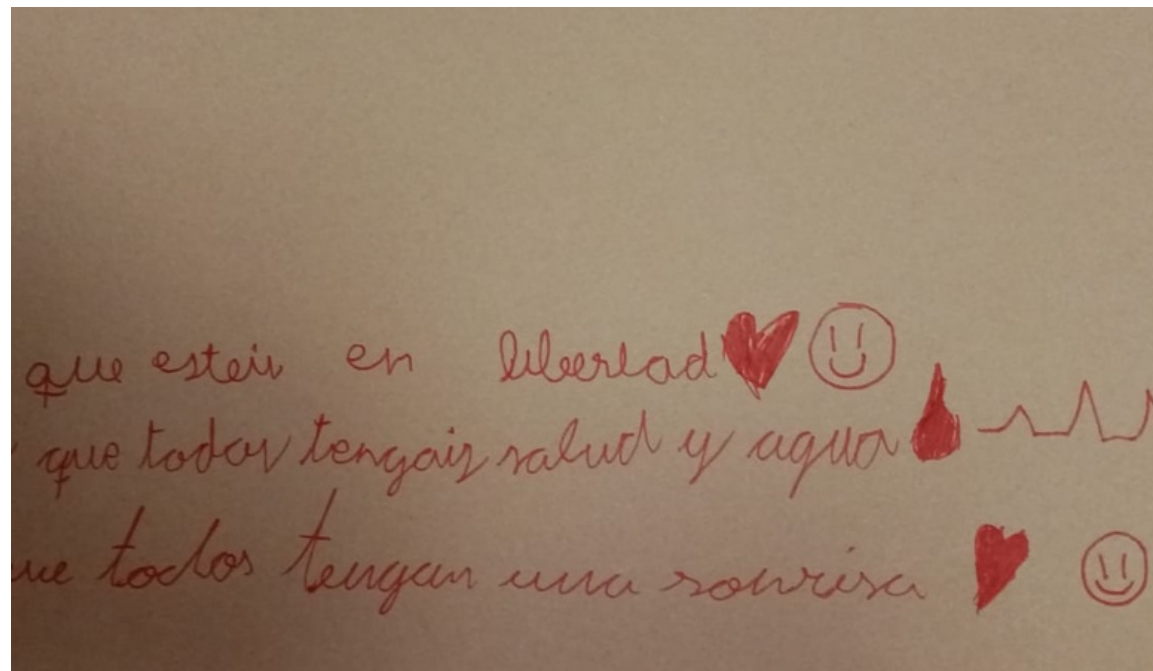 que esteis en libertad
que todos tengais salud y agua
ue todos tengan una sonrisa